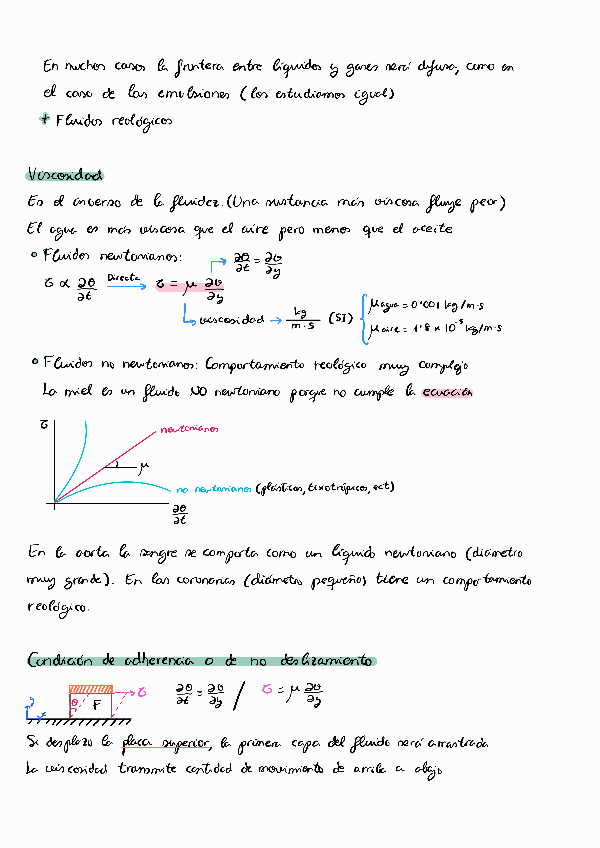 En muchos casos la frontera entre líquidos y gases será difusa, como en
el caso de las emulsiones (los estudiamos igual)
+ Fluidos reológicos
Viscosidad
Es el inverso de la fluidez. (Una sustancia más viscosa fluye peor)
El agua es más viscosa que el aire pero menos que el aceite
• Fluidos newtonianos: ∂θ/∂t = ∂v/∂y
τ ∝ ∂θ/∂t Directa → τ = μ ∂v/∂y
viscosidad → kg/m·s (SI) { μagua = 0'001 kg/m·s
μaire = 1'8 × 10⁻⁵ kg/m·s
• Fluidos no newtonianos: Comportamiento reológico muy complejo
La miel es un fluido NO newtoniano porque no cumple la ecuación
τ
newtonianos
μ
no newtonianos (plásticos, tixotrópicos, ect)
∂θ/∂t
En la aorta la sangre se comporta como un líquido newtoniano (diámetro
muy grande). En las coronarias (diámetro pequeño) tiene un comportamiento
reológico.
Condición de adherencia o de no deslizamiento
y x θ F → τ ∂θ/∂t = ∂v/∂y / τ = μ ∂v/∂y
Si desplazo la placa superior, la primera capa del fluido será arrastrada
La viscosidad transmite cantidad de movimiento de arriba a abajo